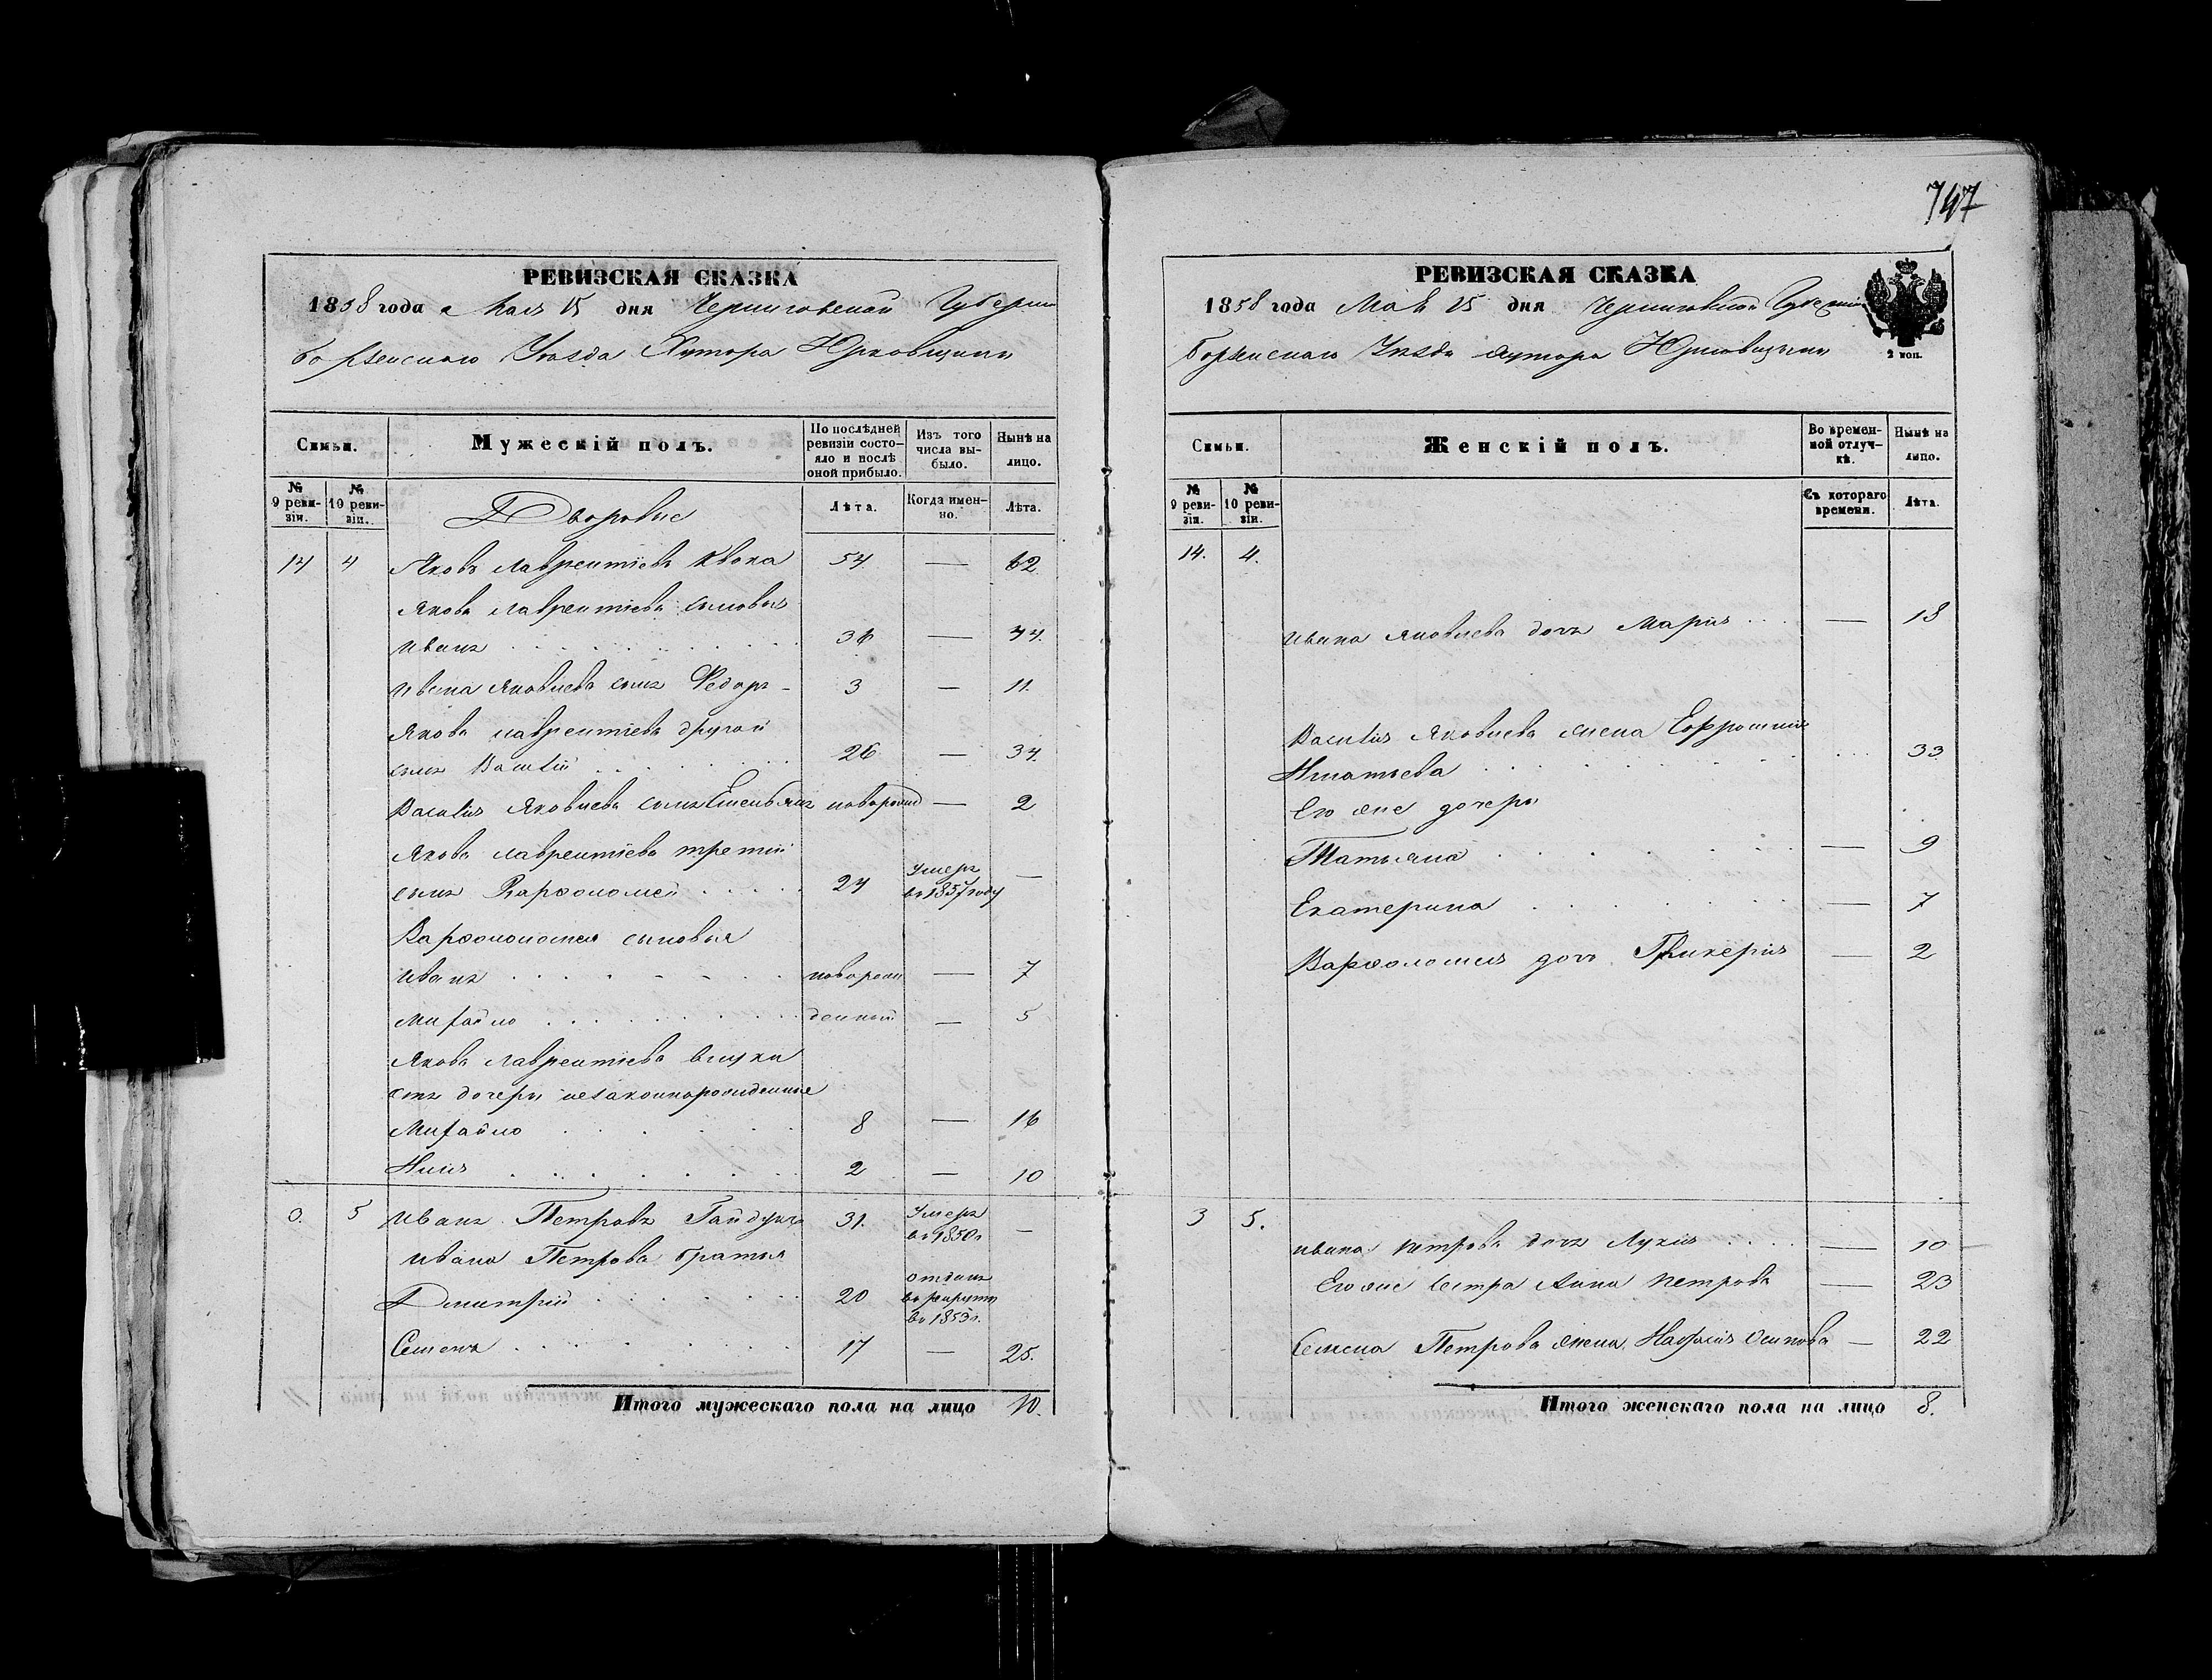 РЕВИЗСКАЯ СКАЗКА
1858 года Мая 15 дня Черниговской Губерніи
Борзенского Уѣзда Хутора Юрковщины
Семьи.
Мужескій полъ.
По послѣдней ревизіи состояло и послѣ оной прибыло.
Изъ того числа выбыло.
Нынѣ на лицо.
№ 9 ревизіи.
№ 10 ревизіи.
Дворовые
Лѣта.
Когда именно.
Лѣта.
14 4 Яковъ Лаврентіевъ Квока 54 — 62
Якова Лаврентіева сыновья
Иванъ 36 — 44.
Ивана Яковлева сынъ Федоръ 3 — 11.
Якова Лаврентіева другой
сынъ Василій 26 — 34.
Василія Яковлева сынъ Емельянъ новорожд — 2
Якова Лаврентіева третій
сынъ Варфоломей 24 умеръ въ 1857 году —
Варфоломея сыновья
Иванъ новорож — 7
Михайло денный — 5
Якова Лаврентіева внуки
отъ дочери незаконнорожденные
Михайло 8 — 16
Илія 2 — 10
0. 5 Иванъ Петровъ Гайдукъ 31. Умеръ въ 1850г —
Ивана Петрова братья
Дмитрій 20 отданъ въ рекруты въ 1853г.
Семенъ 17 — 25.
Итого мужескаго пола на лицо 10.
747
РЕВИЗСКАЯ СКАЗКА
1858 года Мая 15 дня Черниговской Губерніи
Борзенского Уѣзда хутора Юрковщины
2 коп.
Семьи.
Женскій полъ.
Во временной отлучкѣ.
Нынѣ на лицо.
№ 9 ревизіи.
№ 10 ревизіи.
Съ котораго времени.
Лѣта.
14. 4.
Ивана Яковлева дочь Марія — 18
Василія Яковлева жена Ефросинія
Игнатьева 33
Его же дочери
Татьяна — 9
Екатерина — 7
Варфоломея дочь Гликерія — 2
3 5.
Ивана Петрова дочь Лукія — 10
Его же сестра Анна Петрова — 23
Семена Петрова жена Осипова — 22
Итого женскаго пола на лицо 8.